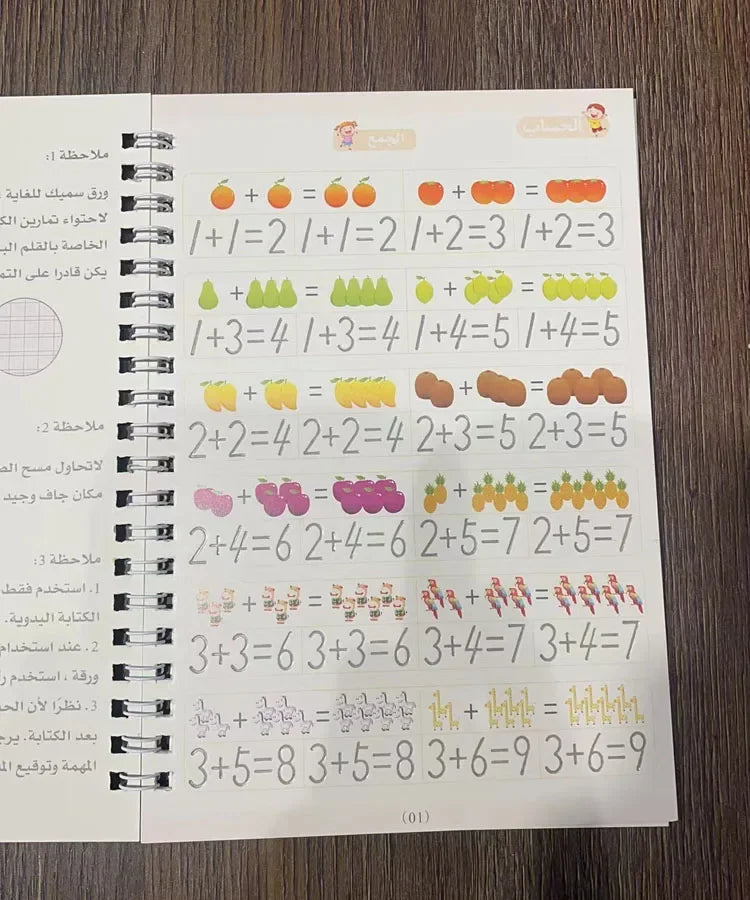 الحساب
الجمع
+ = + =
1+1=2 1+1=2 1+2=3 1+2=3
+ = + =
1+3=4 1+3=4 1+4=5 1+4=5
+ = + =
2+2=4 2+2=4 2+3=5 2+3=5
+ = + =
2+4=6 2+4=6 2+5=7 2+5=7
+ = + =
3+3=6 3+3=6 3+4=7 3+4=7
+ = + =
3+5=8 3+5=8 3+6=9 3+6=9
(01)
ملاحظة 1:
ورق سميك للغاية
لاحتواء تمارين
الخاصة بالقلم
يكن قادرا على
ملاحظة 2:
لاتحاول مسح
مكان جاف وجيد
ملاحظة 3:
1. استخدم فقط
الكتابة اليدوية.
2. عند استخدام
ورقة ، استخدم
3. نظرًا لأن
بعد الكتابة. يرجى
المهمة وتوقيع